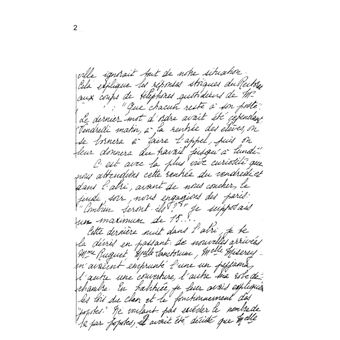 2
ville ignorait tout de notre situation
Cela explique les réponses stoïques du Recteur
aux coups de téléphone quotidiens de Mr
: "Que chacun reste à son poste"
Le dernier mot d'ordre avait été cependant
Vendredi matin, à la rentrée des élèves, on
se bornera à faire l'appel, puis on
leur donnera du travail jusqu'à lundi"
C'est avec la plus vive curiosité que
nous attendions cette rentrée du vendredi et
dans l'abri, avant de nous coucher, le
jeudi soir, nous engagions des paris:
"Combien seront-ils?" Je supposais
un maximum de 15..!
Cette dernière nuit dans l'abri, je
la devais en passant de nouvelles arrivées
Mme Ruguet, Melle, Melle
m'avaient emprunté l'une un pyjama
l'autre une couverture, l'autre ma robe de
chambre. En habituée, je leur avais expliqué
les lois du clan et le fonctionnement des
popotes. Ne voulant pas excéder le nombre de
12 par popotes, il avait été décidé que Melle